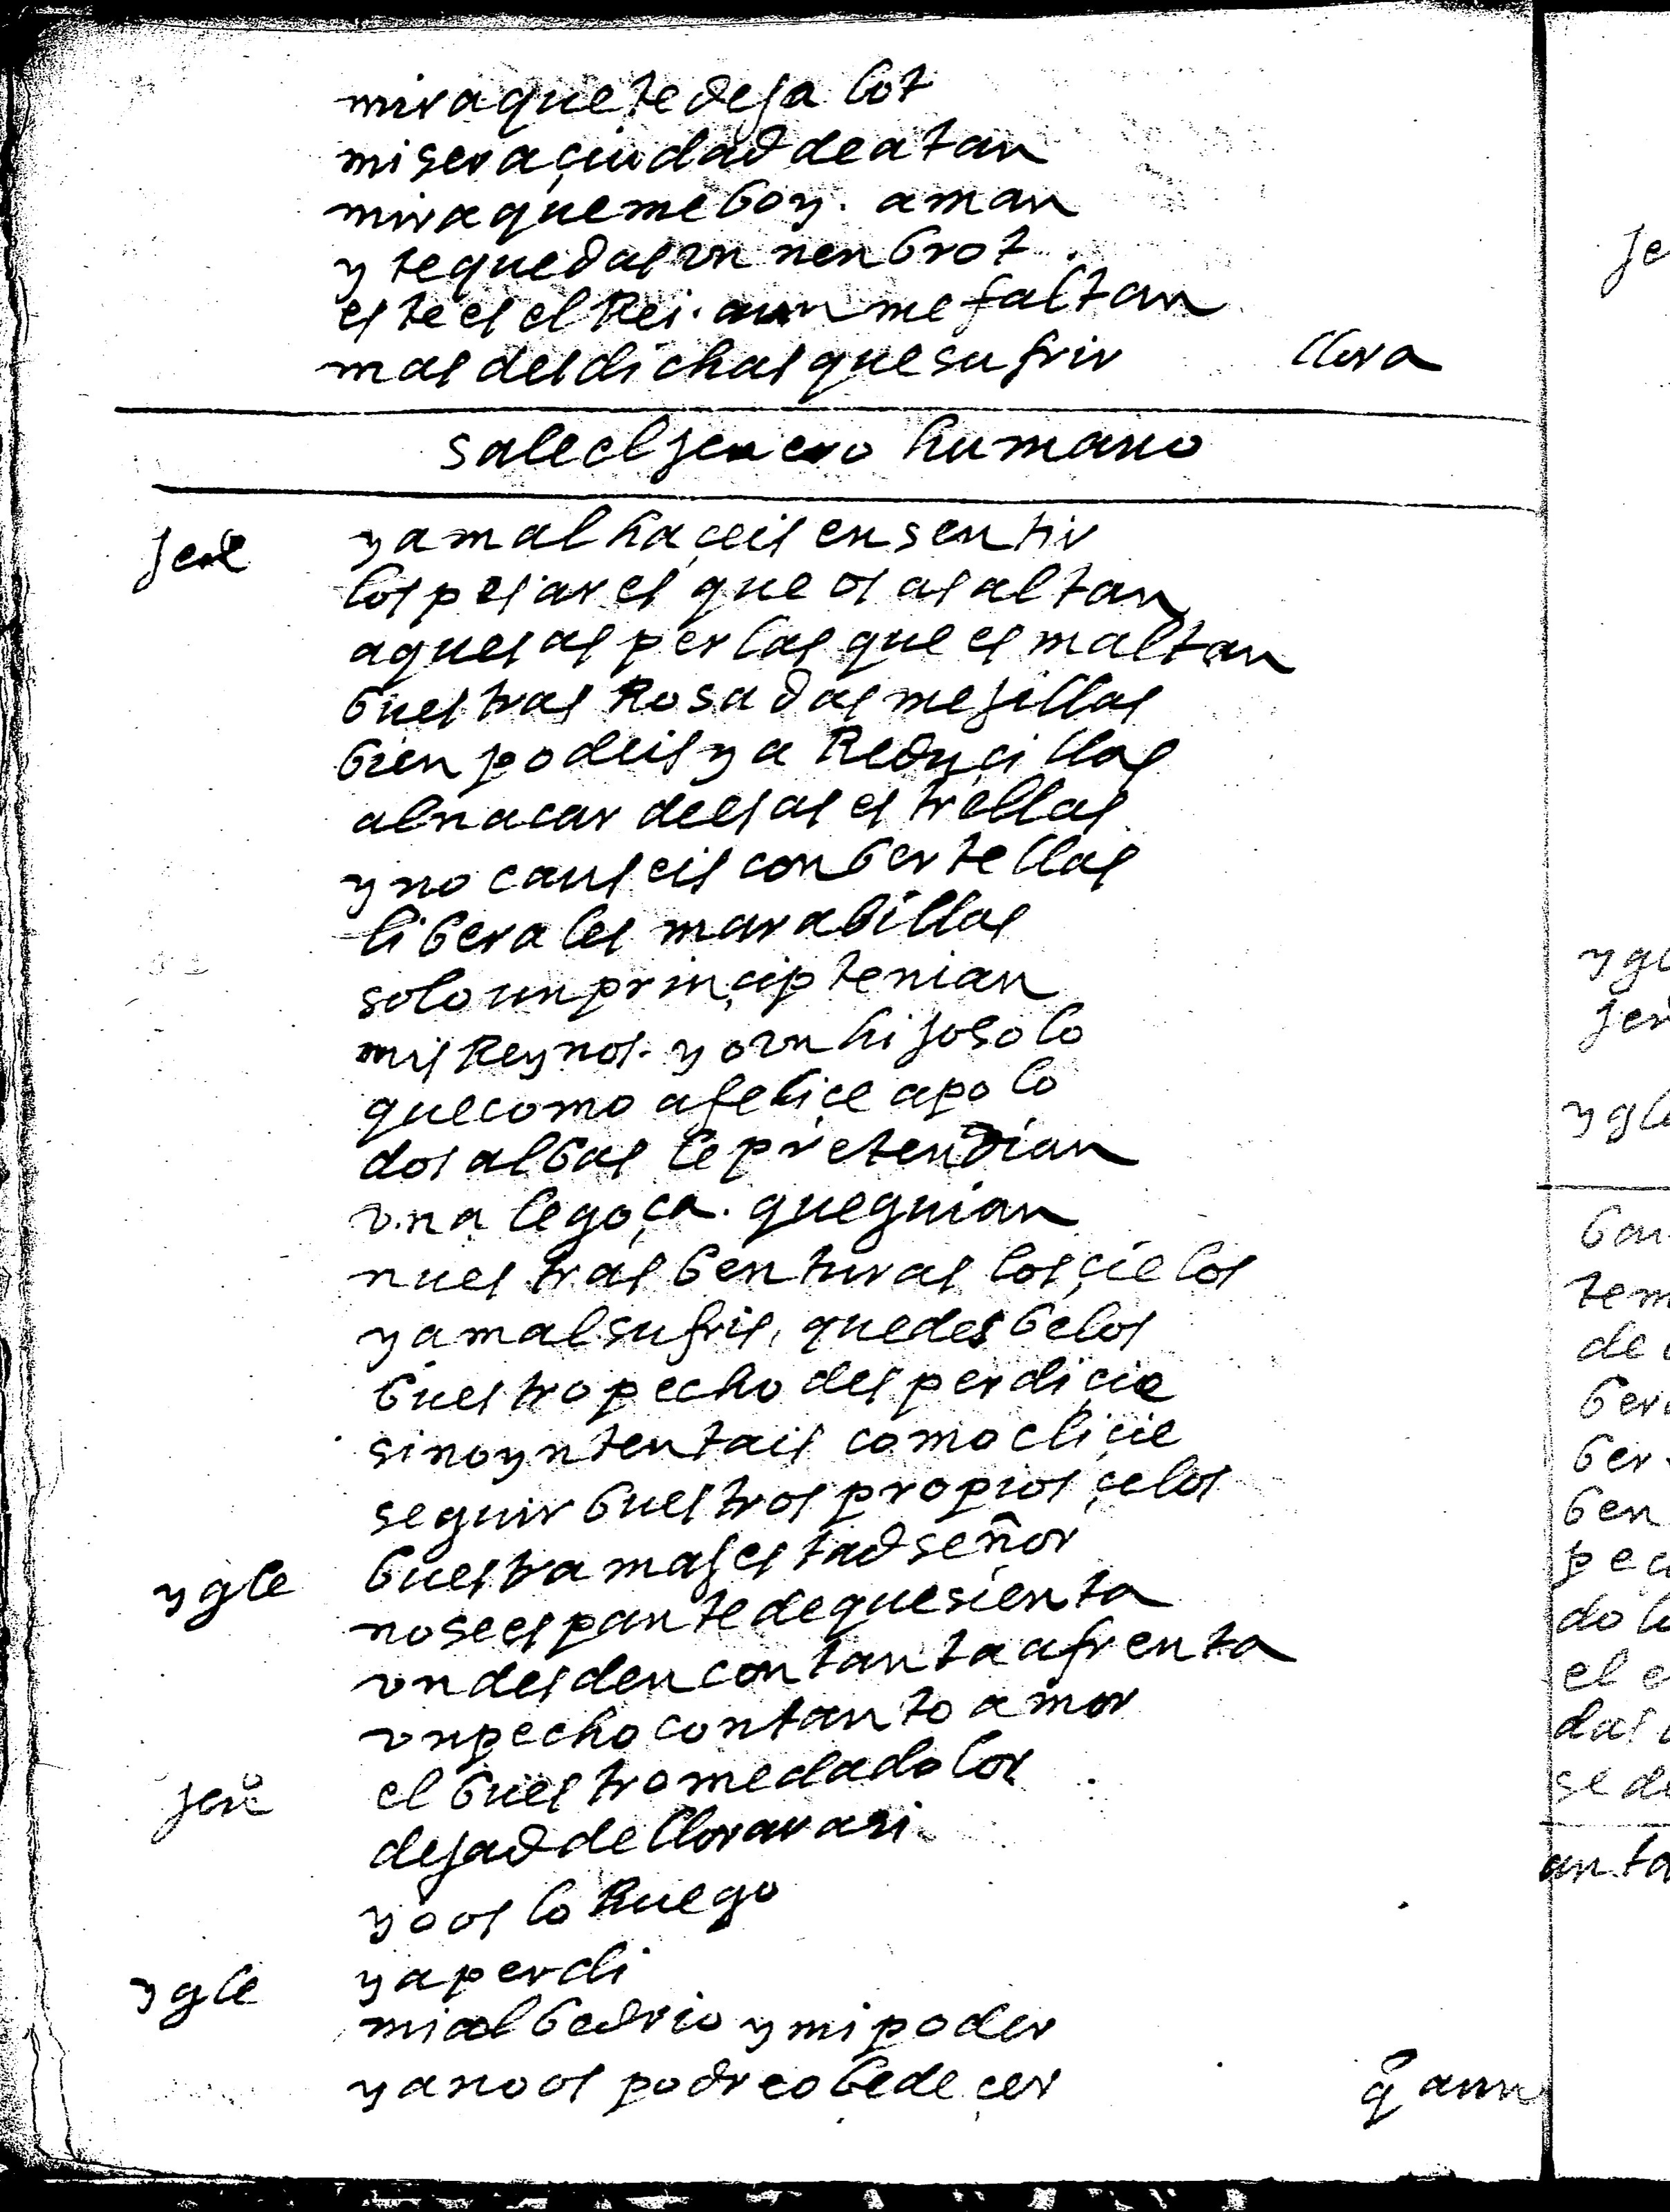 mira que te deja lot
misera çiudad de atan
mira que me boy. aman
y te quedas vn nenbrot
este es el Rei. aun me faltan
mas desdichas que sufrir llora
sale el jenero humano
jene ya mal haçeis en sentir
los pesares que os asaltan
aquesas perlas que esmaltan
buestras Rosadas mejillas
bien podeis ya Reduçillas
al nacar de esas estrellas
y no causeis con bertellas
liberales marabillas
solo un prinçip tenian
mis Reynos. yo vn hijo solo
que como a feliçe apolo
dos albas le pretendian
vna le goça. que guian
nuestras benturas los çielos
ya mal sufris, que desbelos
buestro pecho desperdiçie
si no yntentais como cliçie
seguir buestros propios çelos
ygle buestra majestad señor
no se espante de que sienta
vn desden con tanta afrenta
vn pecho con tanto amor
jen el buestro me da dolor
dejad de llorar asi
yo os lo Ruego
ygle ya perdi
mi albedrio y mi poder
ya no os podre obedeçer
q̃ aun
je
ygl
jen
ygle
tem
de
ben
pec
el e
das
se de